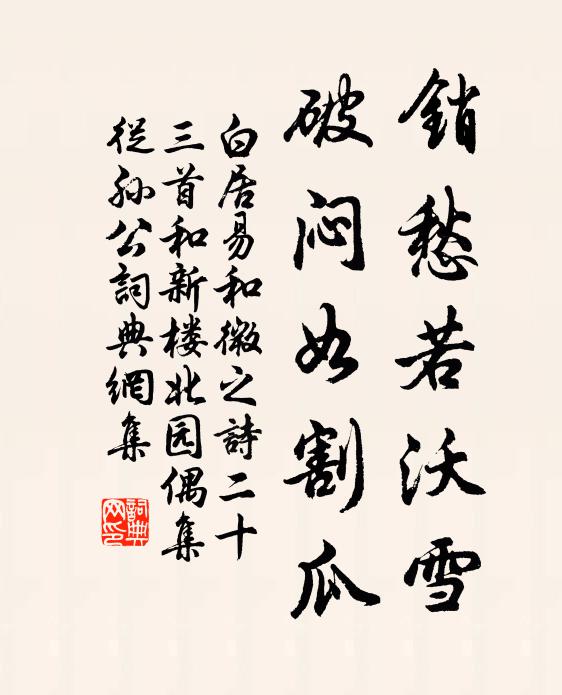 銷愁若沃雪
破闷如割瓜
白居易和微之詩二十
三首和新楼北园偶集
從孙公詞典網集
詞典
网印